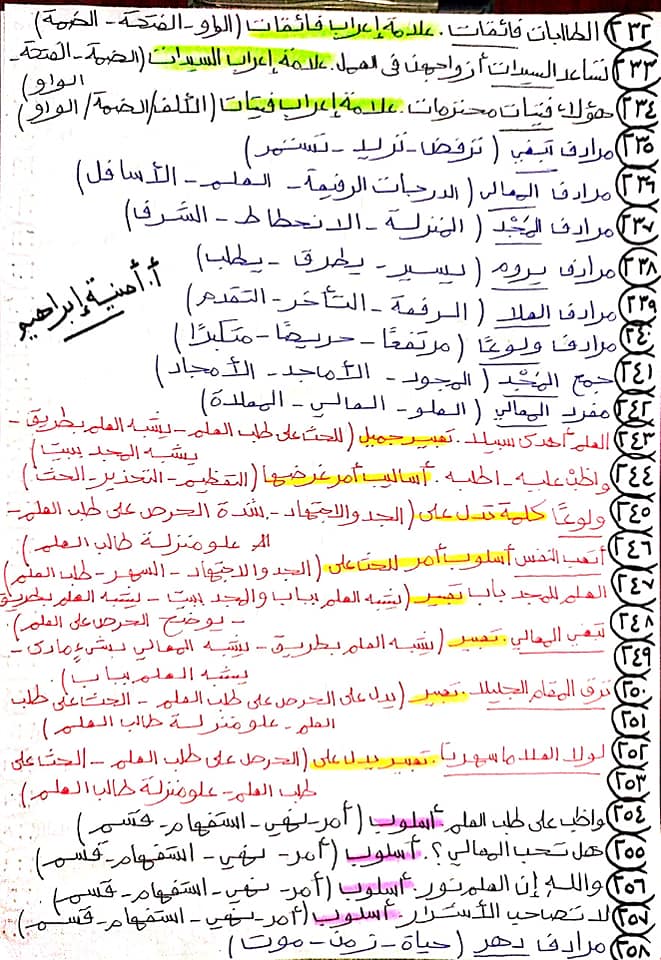 ٢٣٢ الطالبات فائقات. علامة إعراب فائقات (الواو - الفتحة - الضمة)
٢٣٣ تساعد السيدات أزواجهن فى العمل. علامة إعراب السيدات (الضمة - الفتحة -
الواو)
٢٣٤ هؤلاء فتيات محترمات. علامة إعراب فتيات (الألف / الضمة / الواو)
٢٣٥ مرادف تبغي (ترفض - تريد - تستمر)
٢٣٦ مرادف المعالي (الدرجات الرفيعة - العلم - الأسافل)
٢٣٧ مرادف المَجْد (المنزلة - الانحطاط - الشرف)
٢٣٨ مرادف يروم (يسير - يطرق - يطلب)
٢٣٩ مرادف العلا (الرفعة - التأخر - التقدم)
٢٤٠ مرادف ولوعًا (مرتفعًا - حريصًا - متكبرًا)
٢٤١ جمع المَجْد (المجود - الأماجد - الأمجاد)
٢٤٢ مفرد المعالي (العلو - العالي - المعلاة)
أ. أمنية إبراهيم
٢٤٣ العلم أهدى سبيلا. تعبير جميل (للحث على طلب العلم - يشبه العلم بطريق -
يشبه المجد ببيت)
٢٤٤ واظبْ عليه - اطلبه. أساليب أمر غرضها (التعظيم - التحذير - الحث)
٢٤٥ ولوعًا كلمة تدل على (الجد والاجتهاد - شدة الحرص على طلب العلم -
علو منزلة طالب العلم)
٢٤٦ أتعب النفس أسلوب أمر للحث على (الجد والاجتهاد - السهر - طلب العلم)
٢٤٧ العلم للمجد باب تعبير (يشبه العلم بباب والمجد ببيت - يشبه العلم بطريق
- يوضح الحرص على العلم)
٢٤٨ تبغي المعالي. تعبير (يشبه العلم بطريق - يشبه المعالي بشيء مادى -
٢٤٩ يشبه العلم بباب)
٢٥٠ ترق المقام الجليلا. تعبير (يدل على الحرص على طلب العلم - الحث على طلب
٢٥١ العلم - علو منزلة طالب العلم)
٢٥٢ لولا العلا ما سهرنا. تعبير يدل على (الحرص على طلب العلم - الحث على
٢٥٣ طلب العلم - علو منزلة طالب العلم).
٢٥٤ واظب على طلب العلم. أسلوب (أمر - نهي - استفهام - قسم)
٢٥٥ هل تحب المعالي؟. أسلوب (أمر - نهي - استفهام - قسم)
٢٥٦ والله إن العلم نور. أسلوب (أمر - نهي - استفهام - قسم)
٢٥٧ لا تصاحب الأشرار. أسلوب (أمر - نهي - استفهام - قسم)
٢٥٨ مرادف دهر (حياة - زمن - موت)